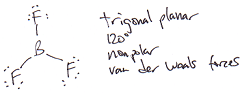 F
B
F
F
trigonal planar
120°
nonpolar
van der waals forces